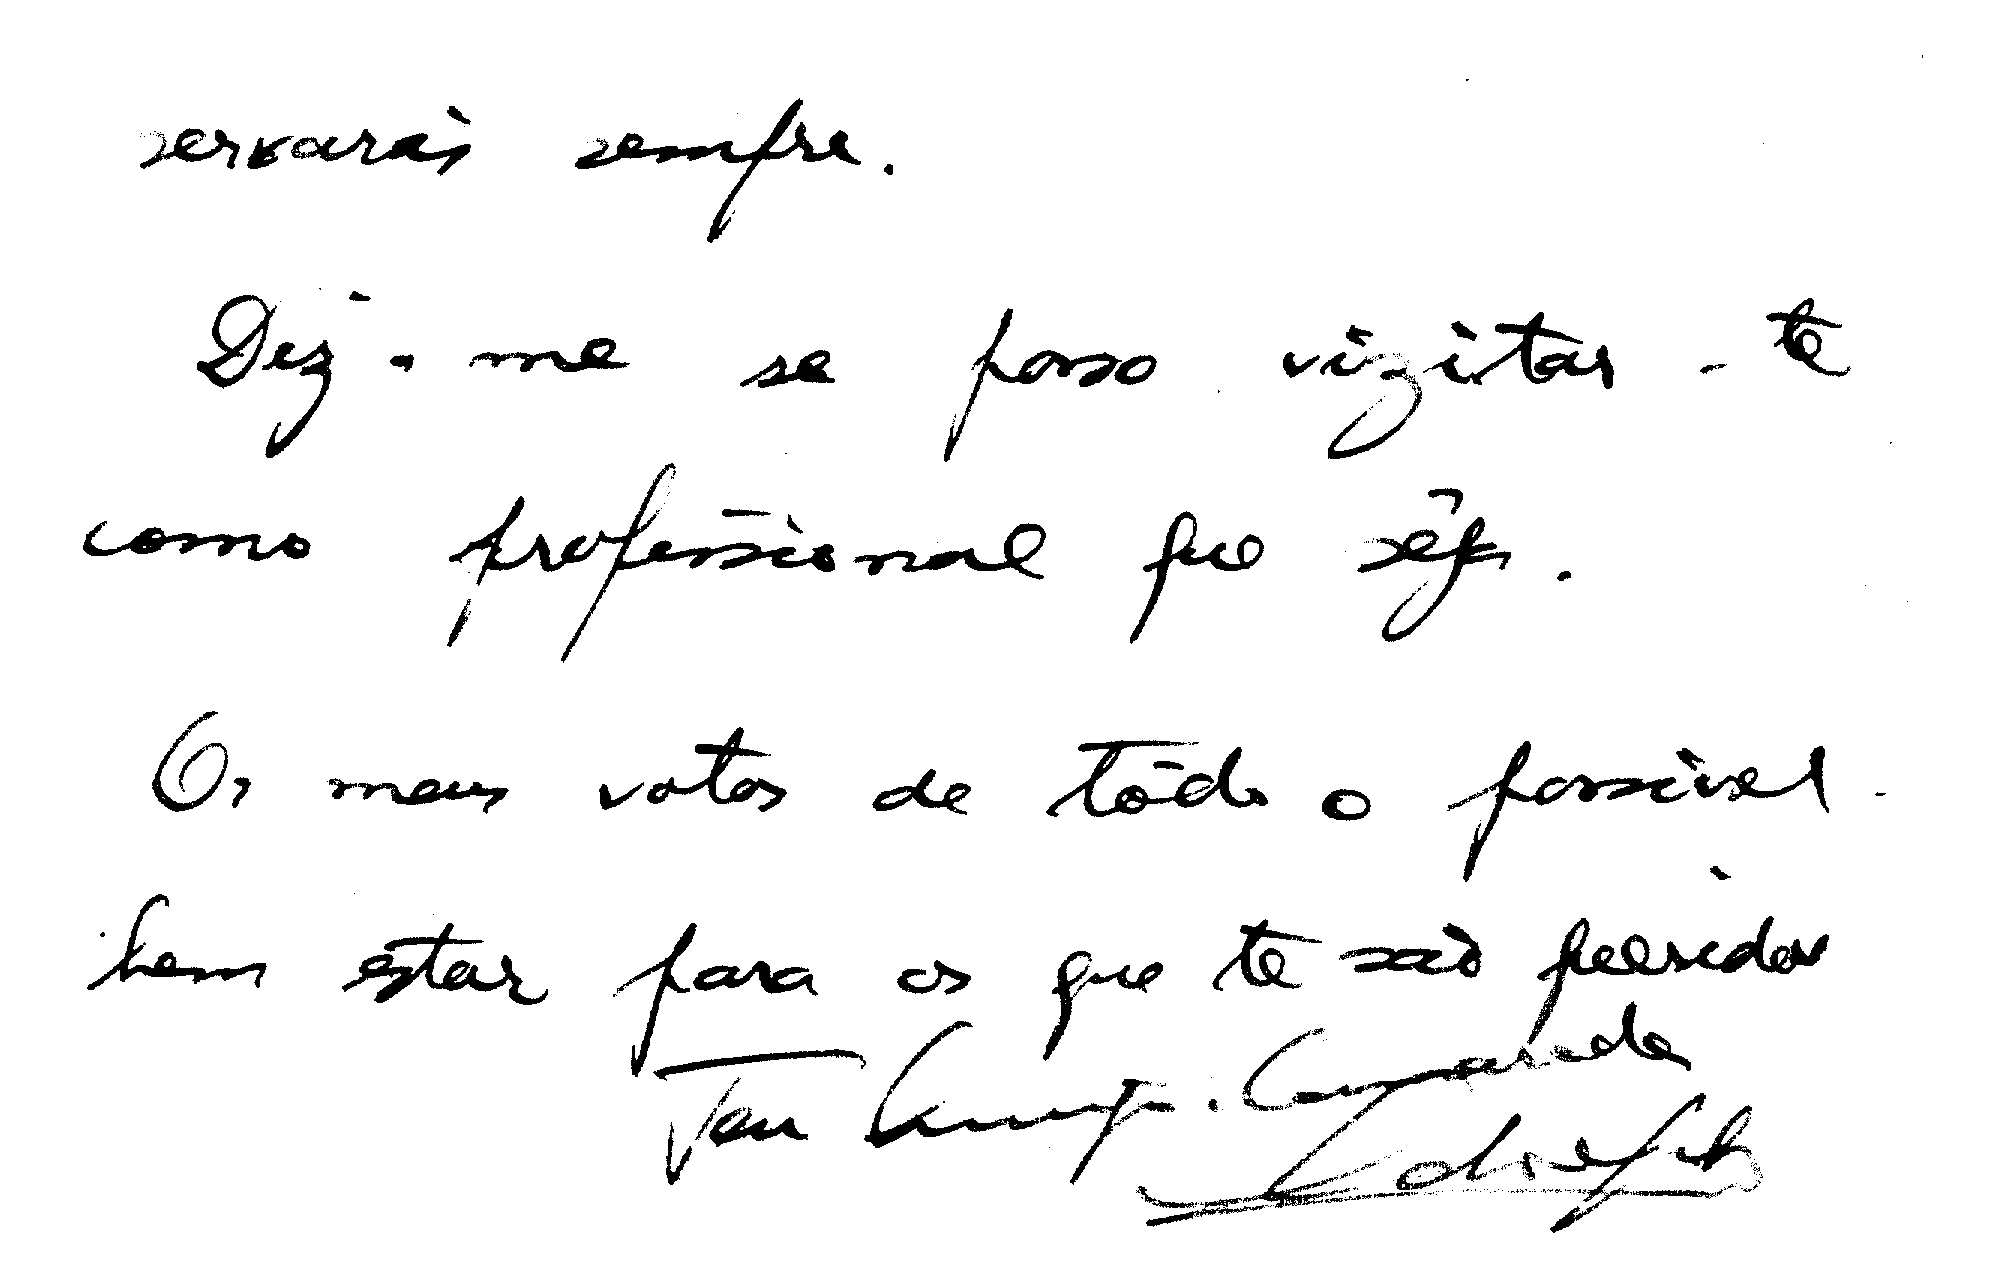 servarás sempre.
Diz-me se posso vizitar-te
como profissional que sêja.
Os meus votos de tôdo o possivel
bem estar para os que te são queridos
Teu Amigo. Camarada